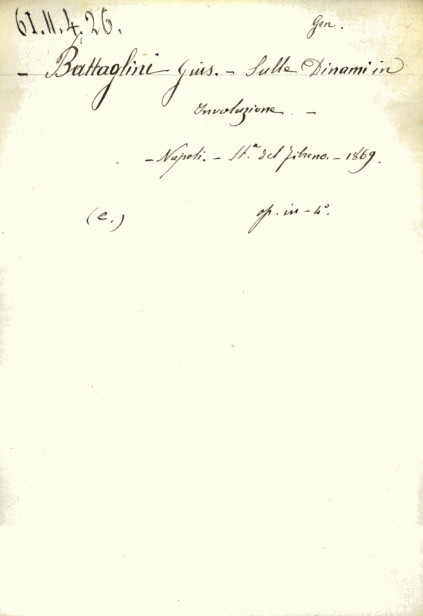 61.II.4.26.
Gen.
- Battaglini Gius. - Sulle Dinami in
Involuzione. -
- Napoli. - St.ª del Fibreno. - 1869.
(e.)
op. in-4°.